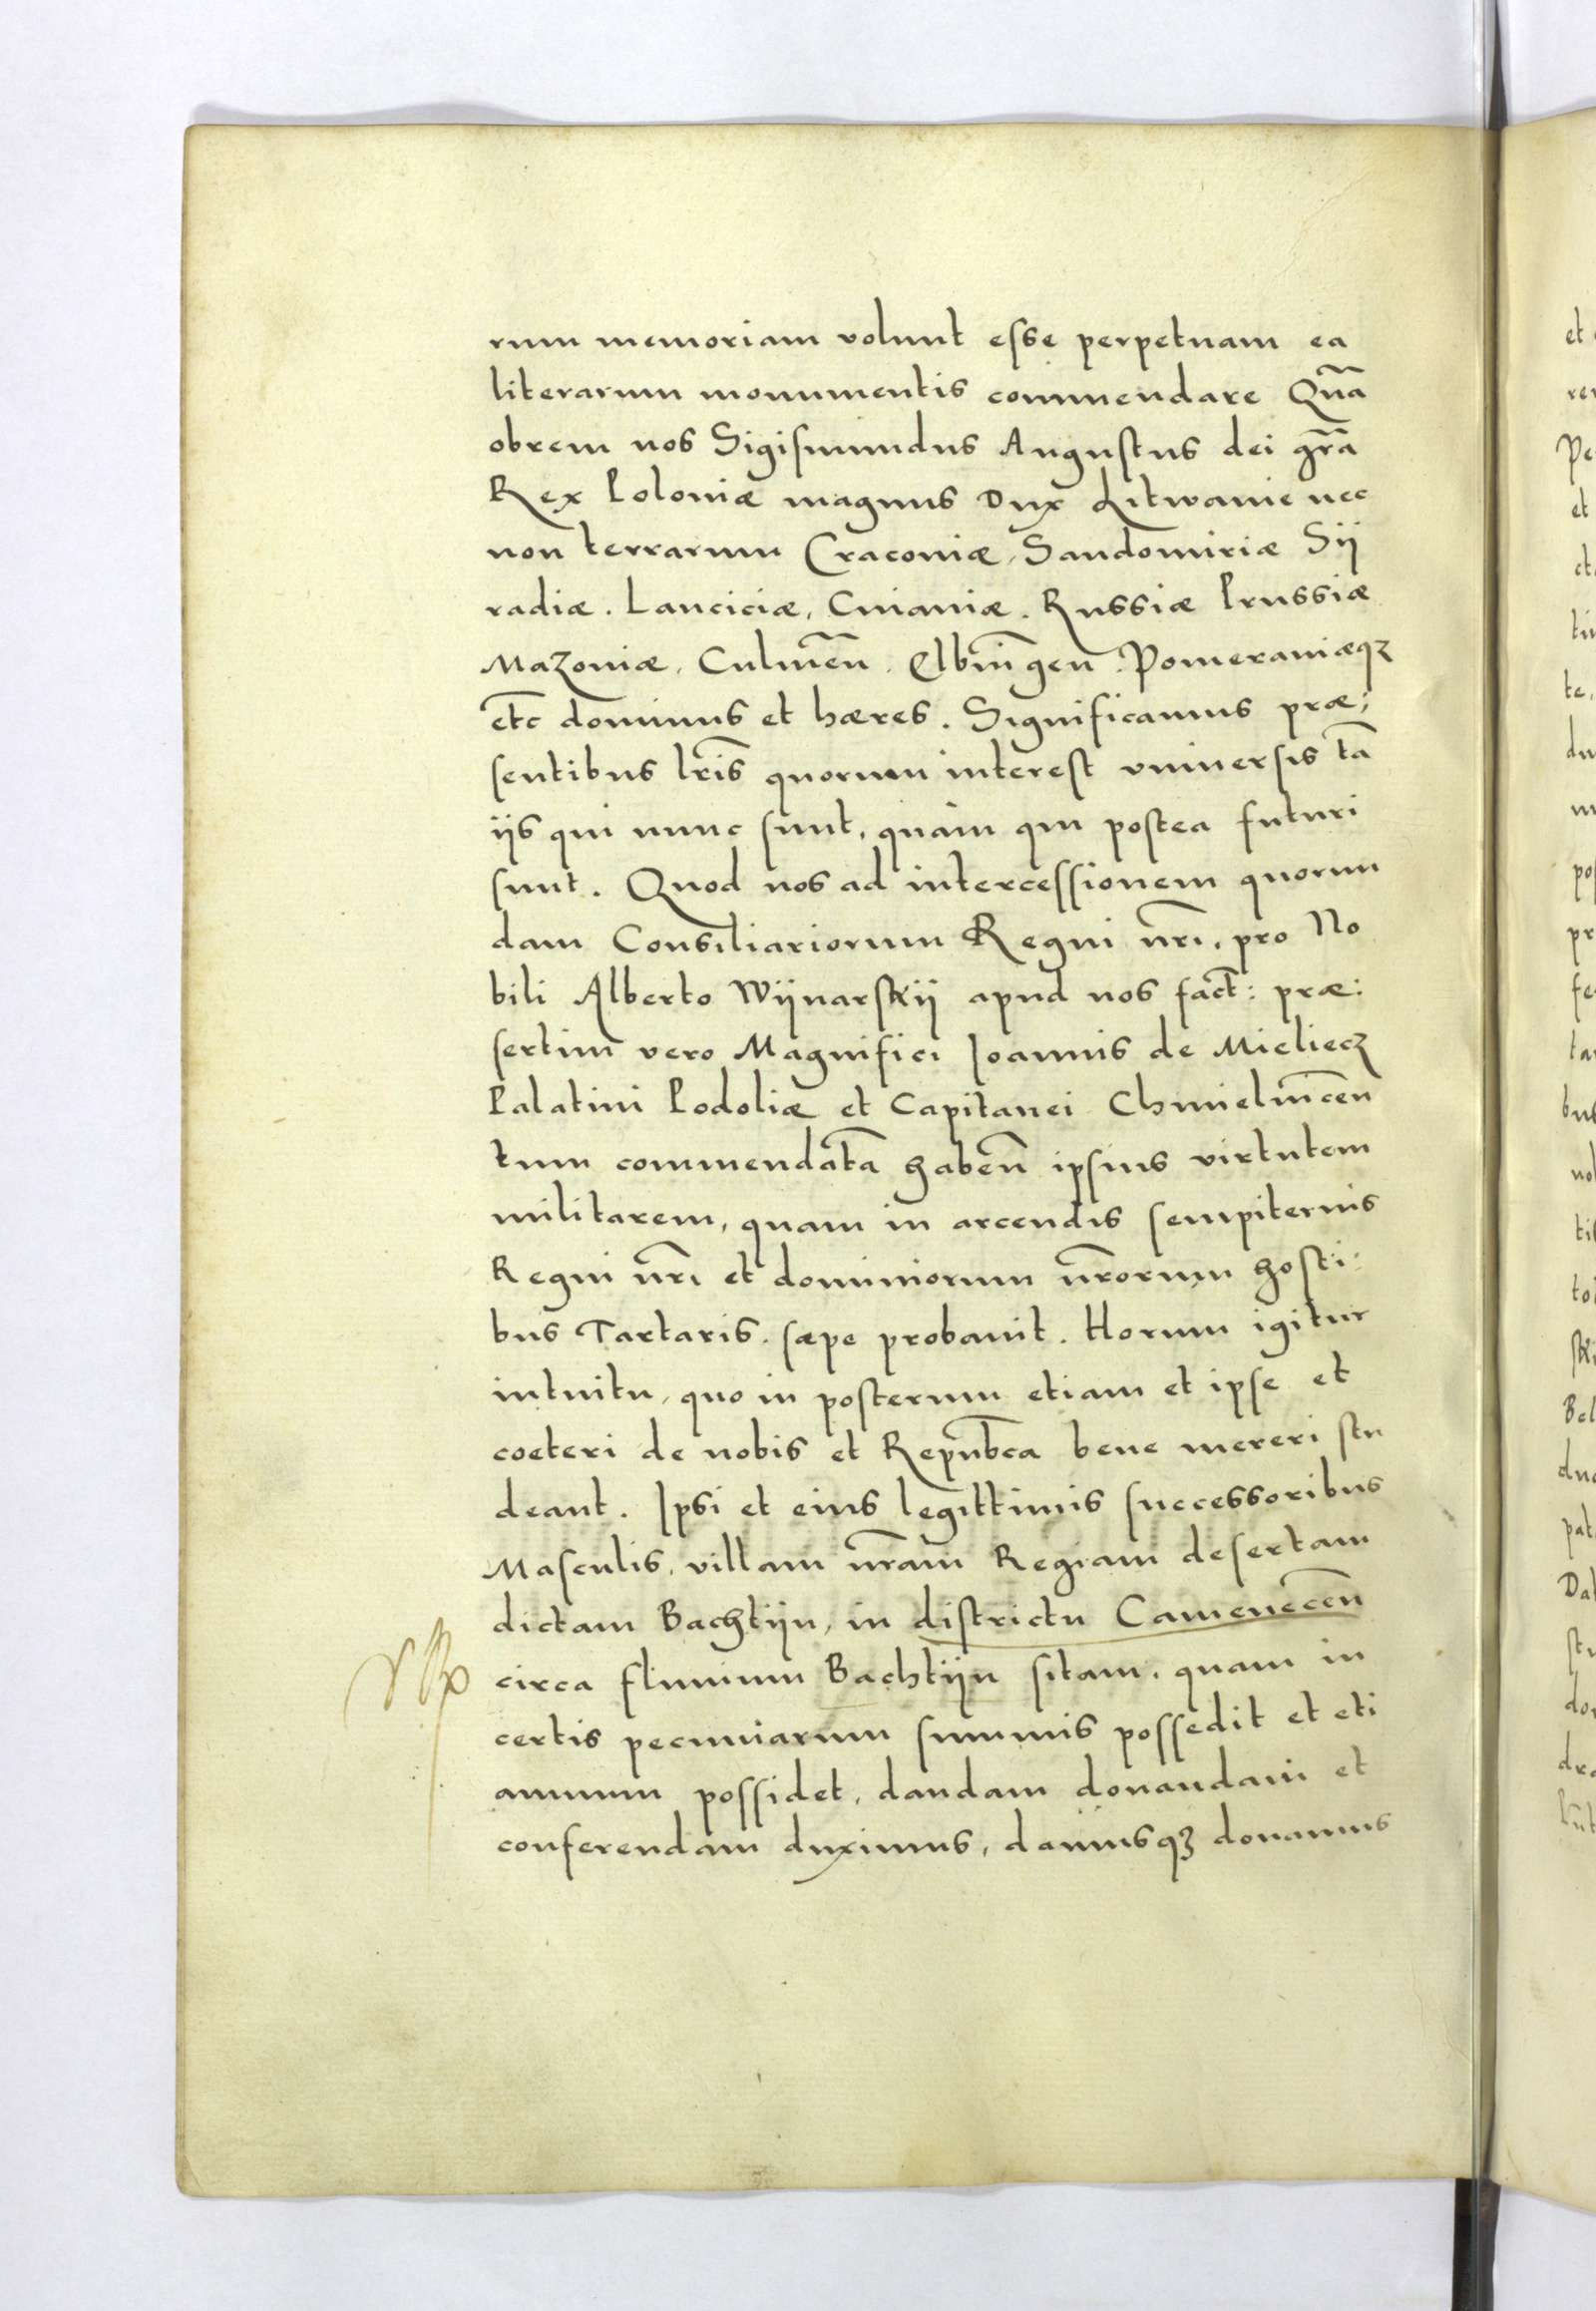 rum memoriam volunt esse perpetuam ea
literarum monumentis commendare Quã
obrem nos Sigismundus Augustus dei gr̃a
Rex Poloniæ magnus Dux Litwanie nec
non terrarum Cracoviæ, Sandomiriæ Sij
radiæ. Lanciciæ, Cuiaviæ. Russiæ Prussiæ
Mazoviæ. Culmeñ. Elbingeñ. Pomeraniæqȝ
et̃c dominus et hæres. Significamus præ:
sentibus lr̃is quorum interest universis tã
ijs qui nunc sunt, quàm qui postea futuri
sunt. Quod nos ad intercessionem quorun
dam Consiliariorum Regni nr̃i, pro No
bili Alberto Wijnarskij apud nos fact̃: præ:
sertim vero Magnifici Joannis de Mieliecz
Palatini Podoliæ et Capitanei Chmielniceñ
tum commendatã habeñ ipsius virtutem
militarem, quam in arcendis sempiternis
Regni nr̃i et dominiorum nr̃orum hosti:
bus Tartaris. sæpe probavit. Horum igitur
intuitu, quo in posterum etiam et ipse et
coeteri de nobis et Repub̃ca bene mereri stu
deant. Ipsi et eius legittimis successoribus
Masculis, villam nr̃am Regiam desertam
dictam Bachtijn, in districtu Cameneceñ
circa fluvium Bachtijn sitam, quam in
certis pecuniarum summis possedit et eti
amnum possidet, dandam donandam et
conferendam duximus, damusqȝ donamus